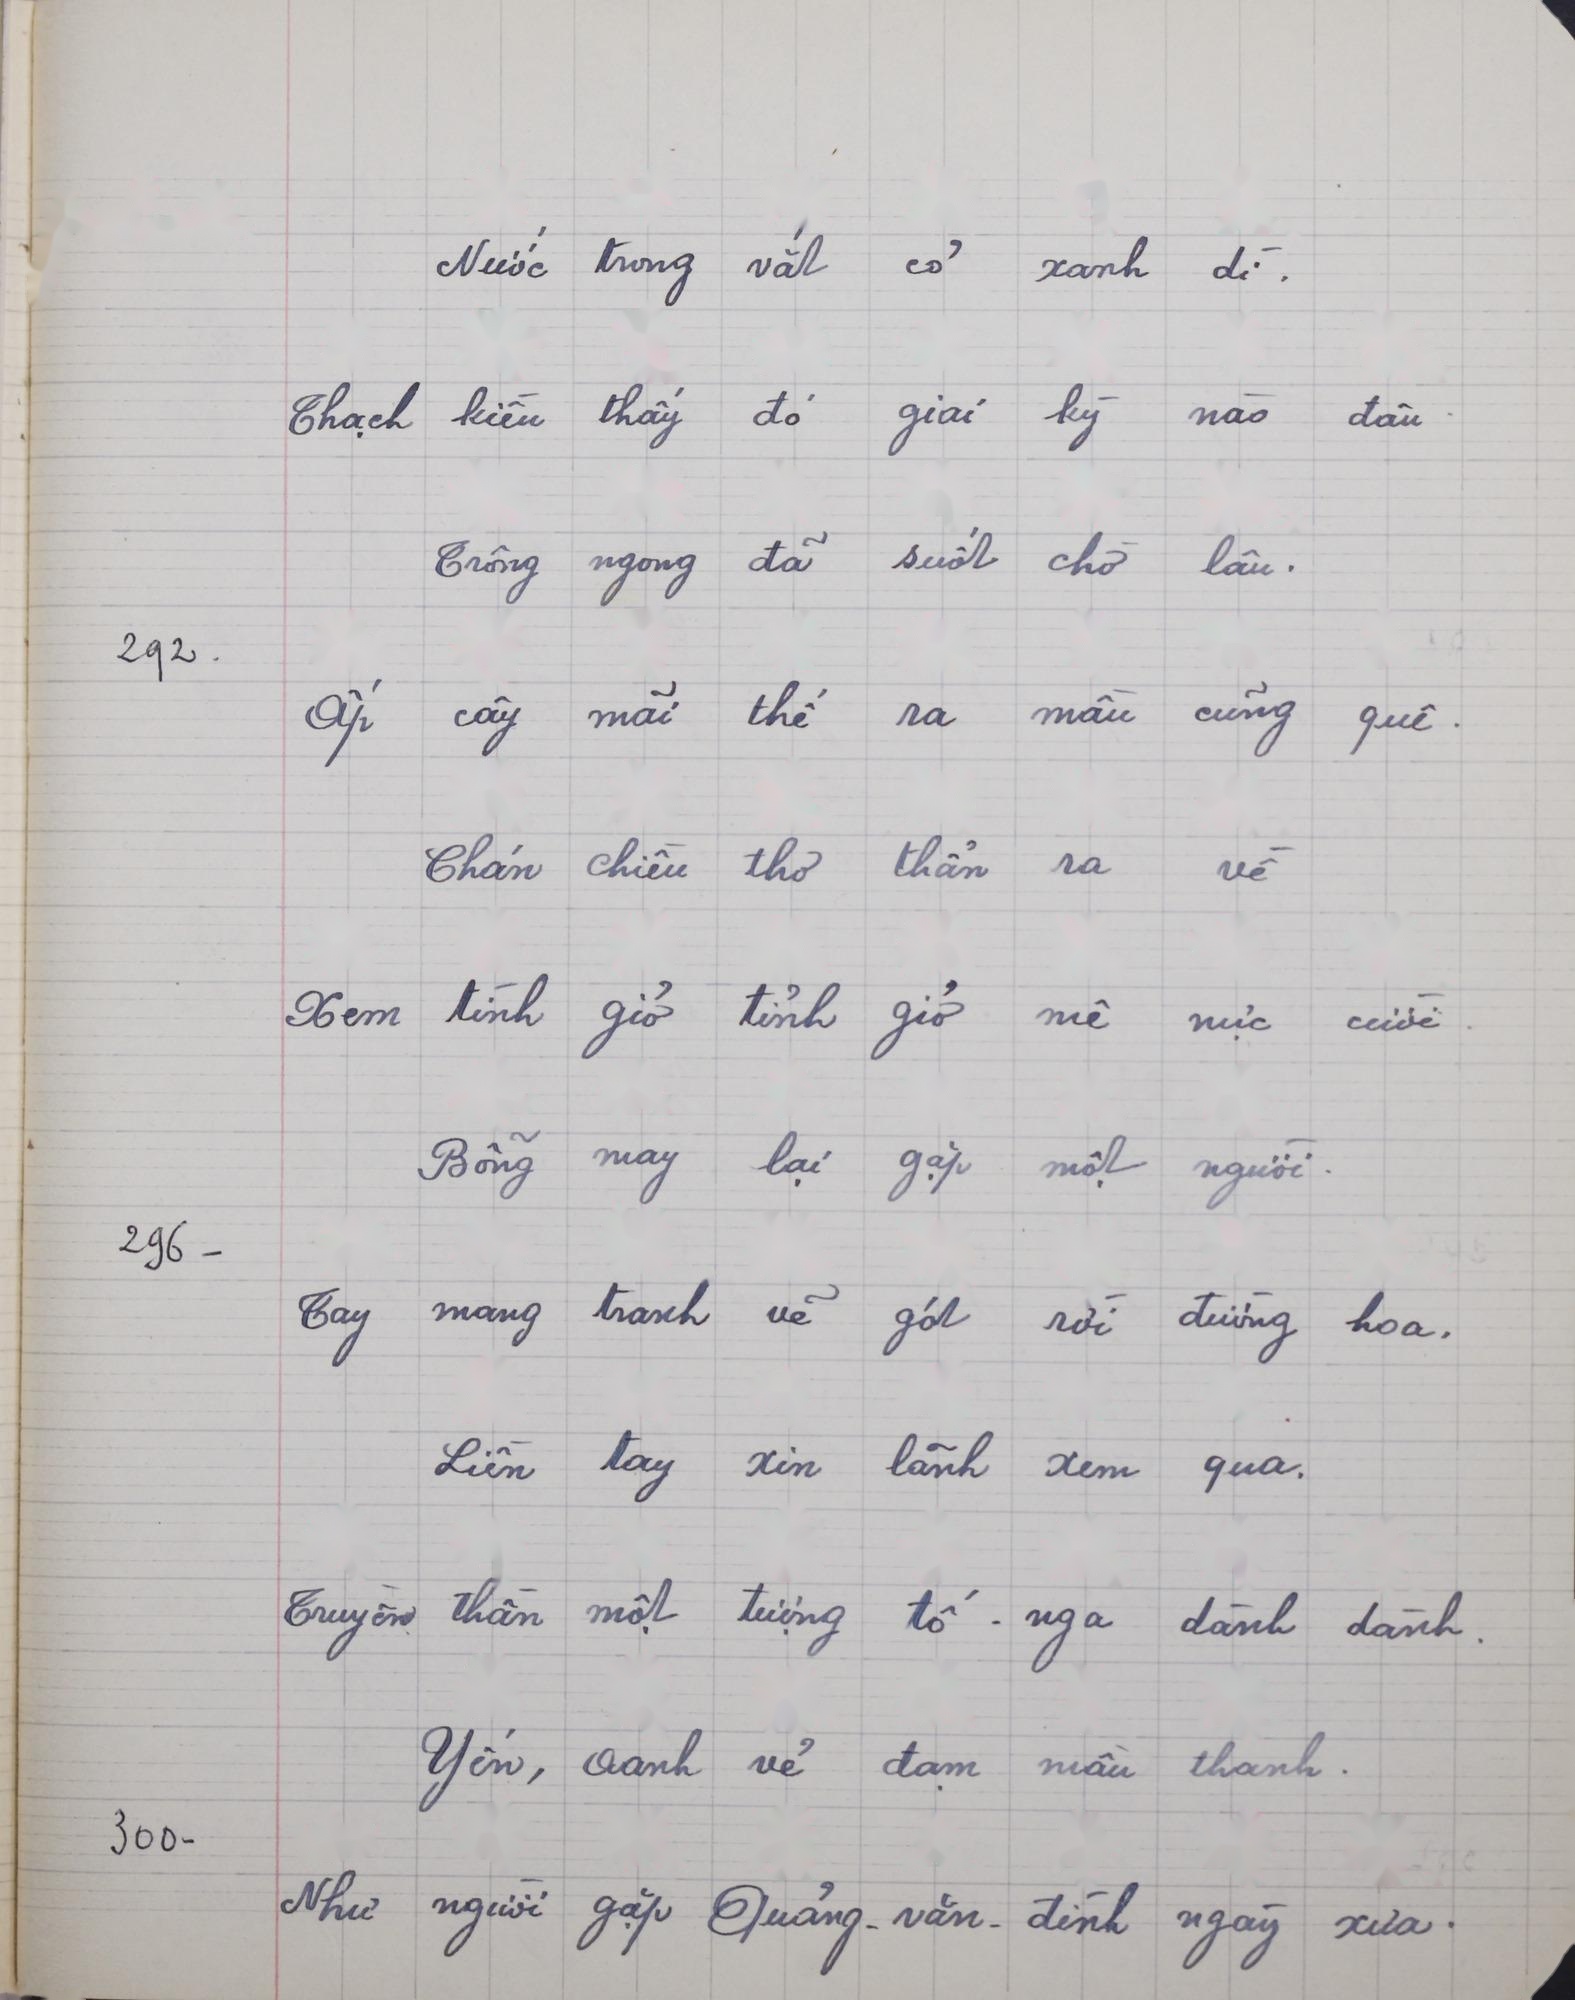 Nước trong vắt cỏ xanh dì.
Thạch kiều thấy đó giai kỳ nào đâu.
Trông ngong đã suốt chờ lâu.
292.
Ấp cây mãi thế ra mầu cũng quê.
Chán chiều thơ thẩn ra về
Xem tình giở tỉnh giở mê nực cười.
Bỗng may lại gặp một người.
296-
Tay mang tranh vẽ gót rời đường hoa.
Liền tay xin lãnh xem qua.
Truyền thần một tượng tố-nga dành dành.
Yến, oanh vẻ đạm mầu thanh.
300-
Như người gặp Quảng-văn-đình ngày xưa.